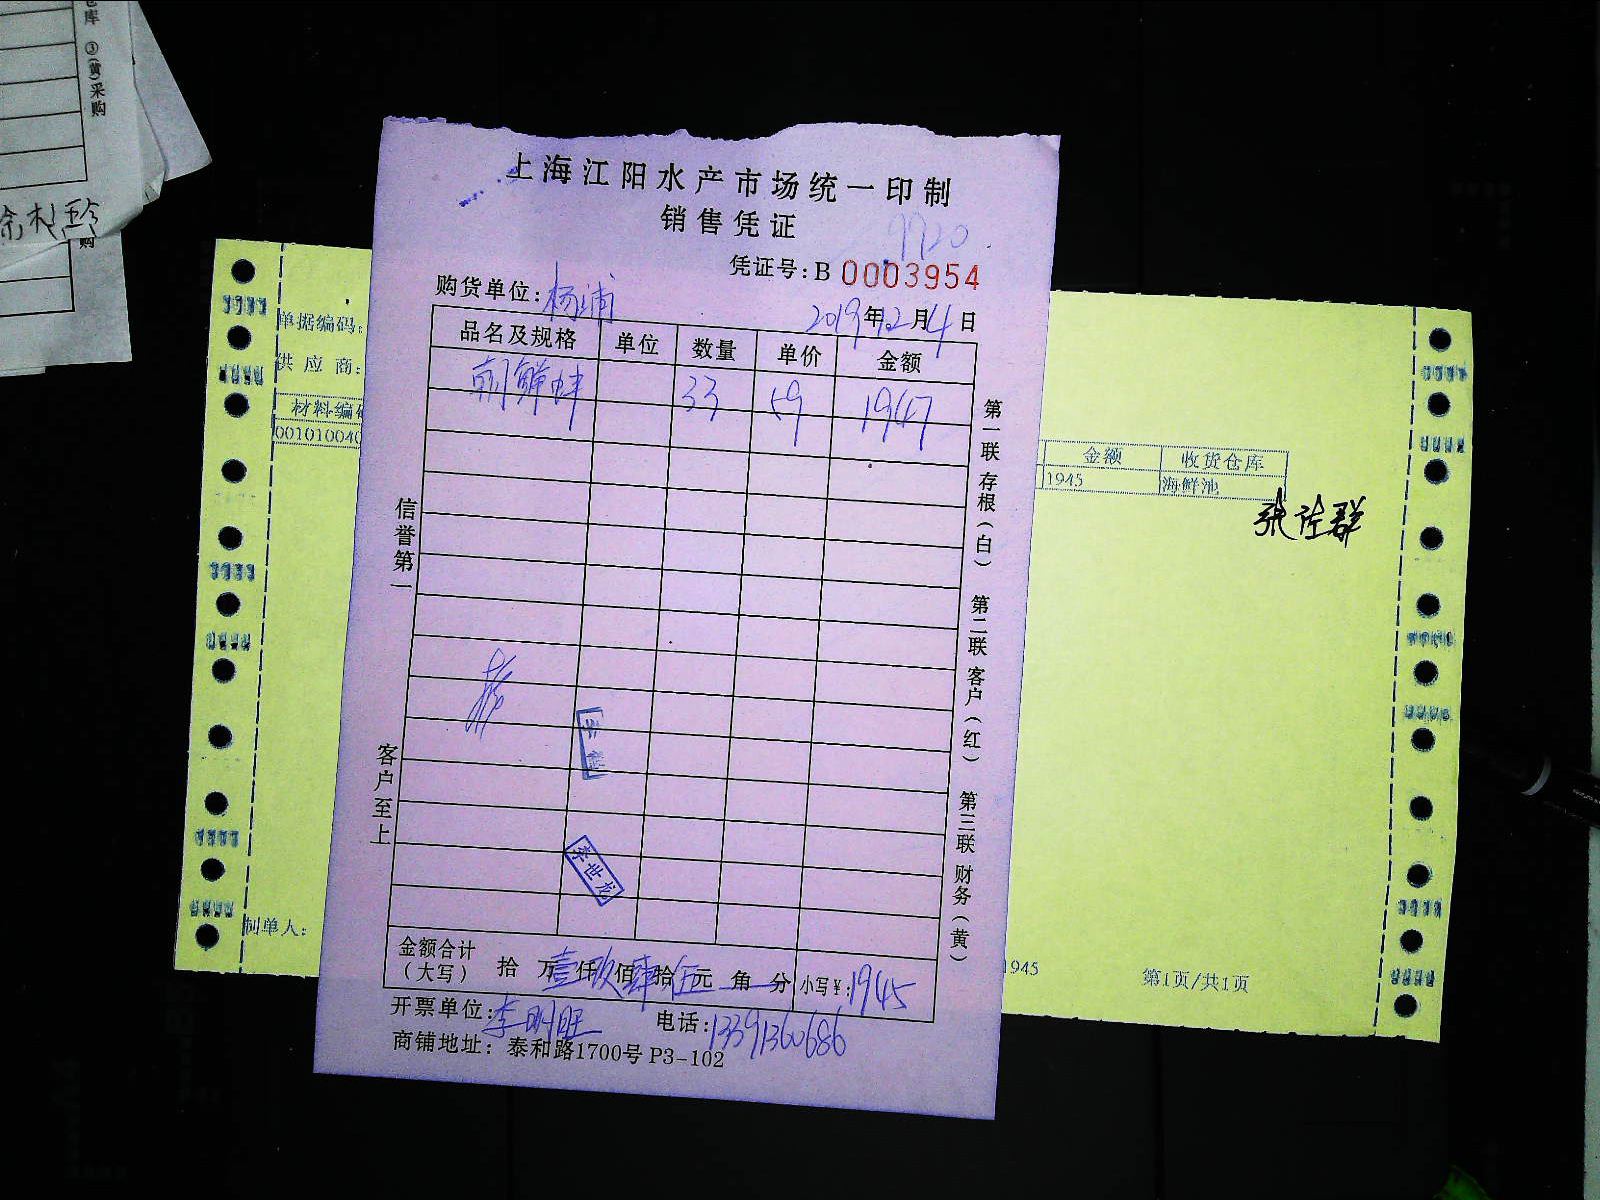 仓库 ③(黄)采购
购
上海江阳水产市场统一印制
销售凭证
9920
凭证号:B 0003954
购货单位:杨浦
2019年12月4日
品名及规格 单位 数量 单价 金额
朝鲜蚌 33 59 1947
信誉第一
客户至上
第一联 存根(白) 第二联 客户(红) 第三联 财务(黄)
李世龙
金额合计(大写) 拾 万壹仟玖佰肆拾伍元 角 分 小写¥:1945
开票单位:李明旺 电话:13391360686
商铺地址: 泰和路1700号 P3-102
单据编码:
供应商:
材料编码
00101004
金额 收货仓库
1945 海鲜池
制单人:
1945
第1页/共1页